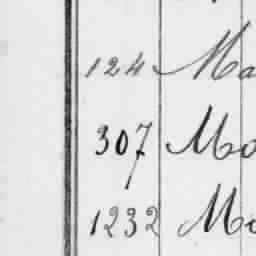 124 Ma
307 Mo
1232 Mo